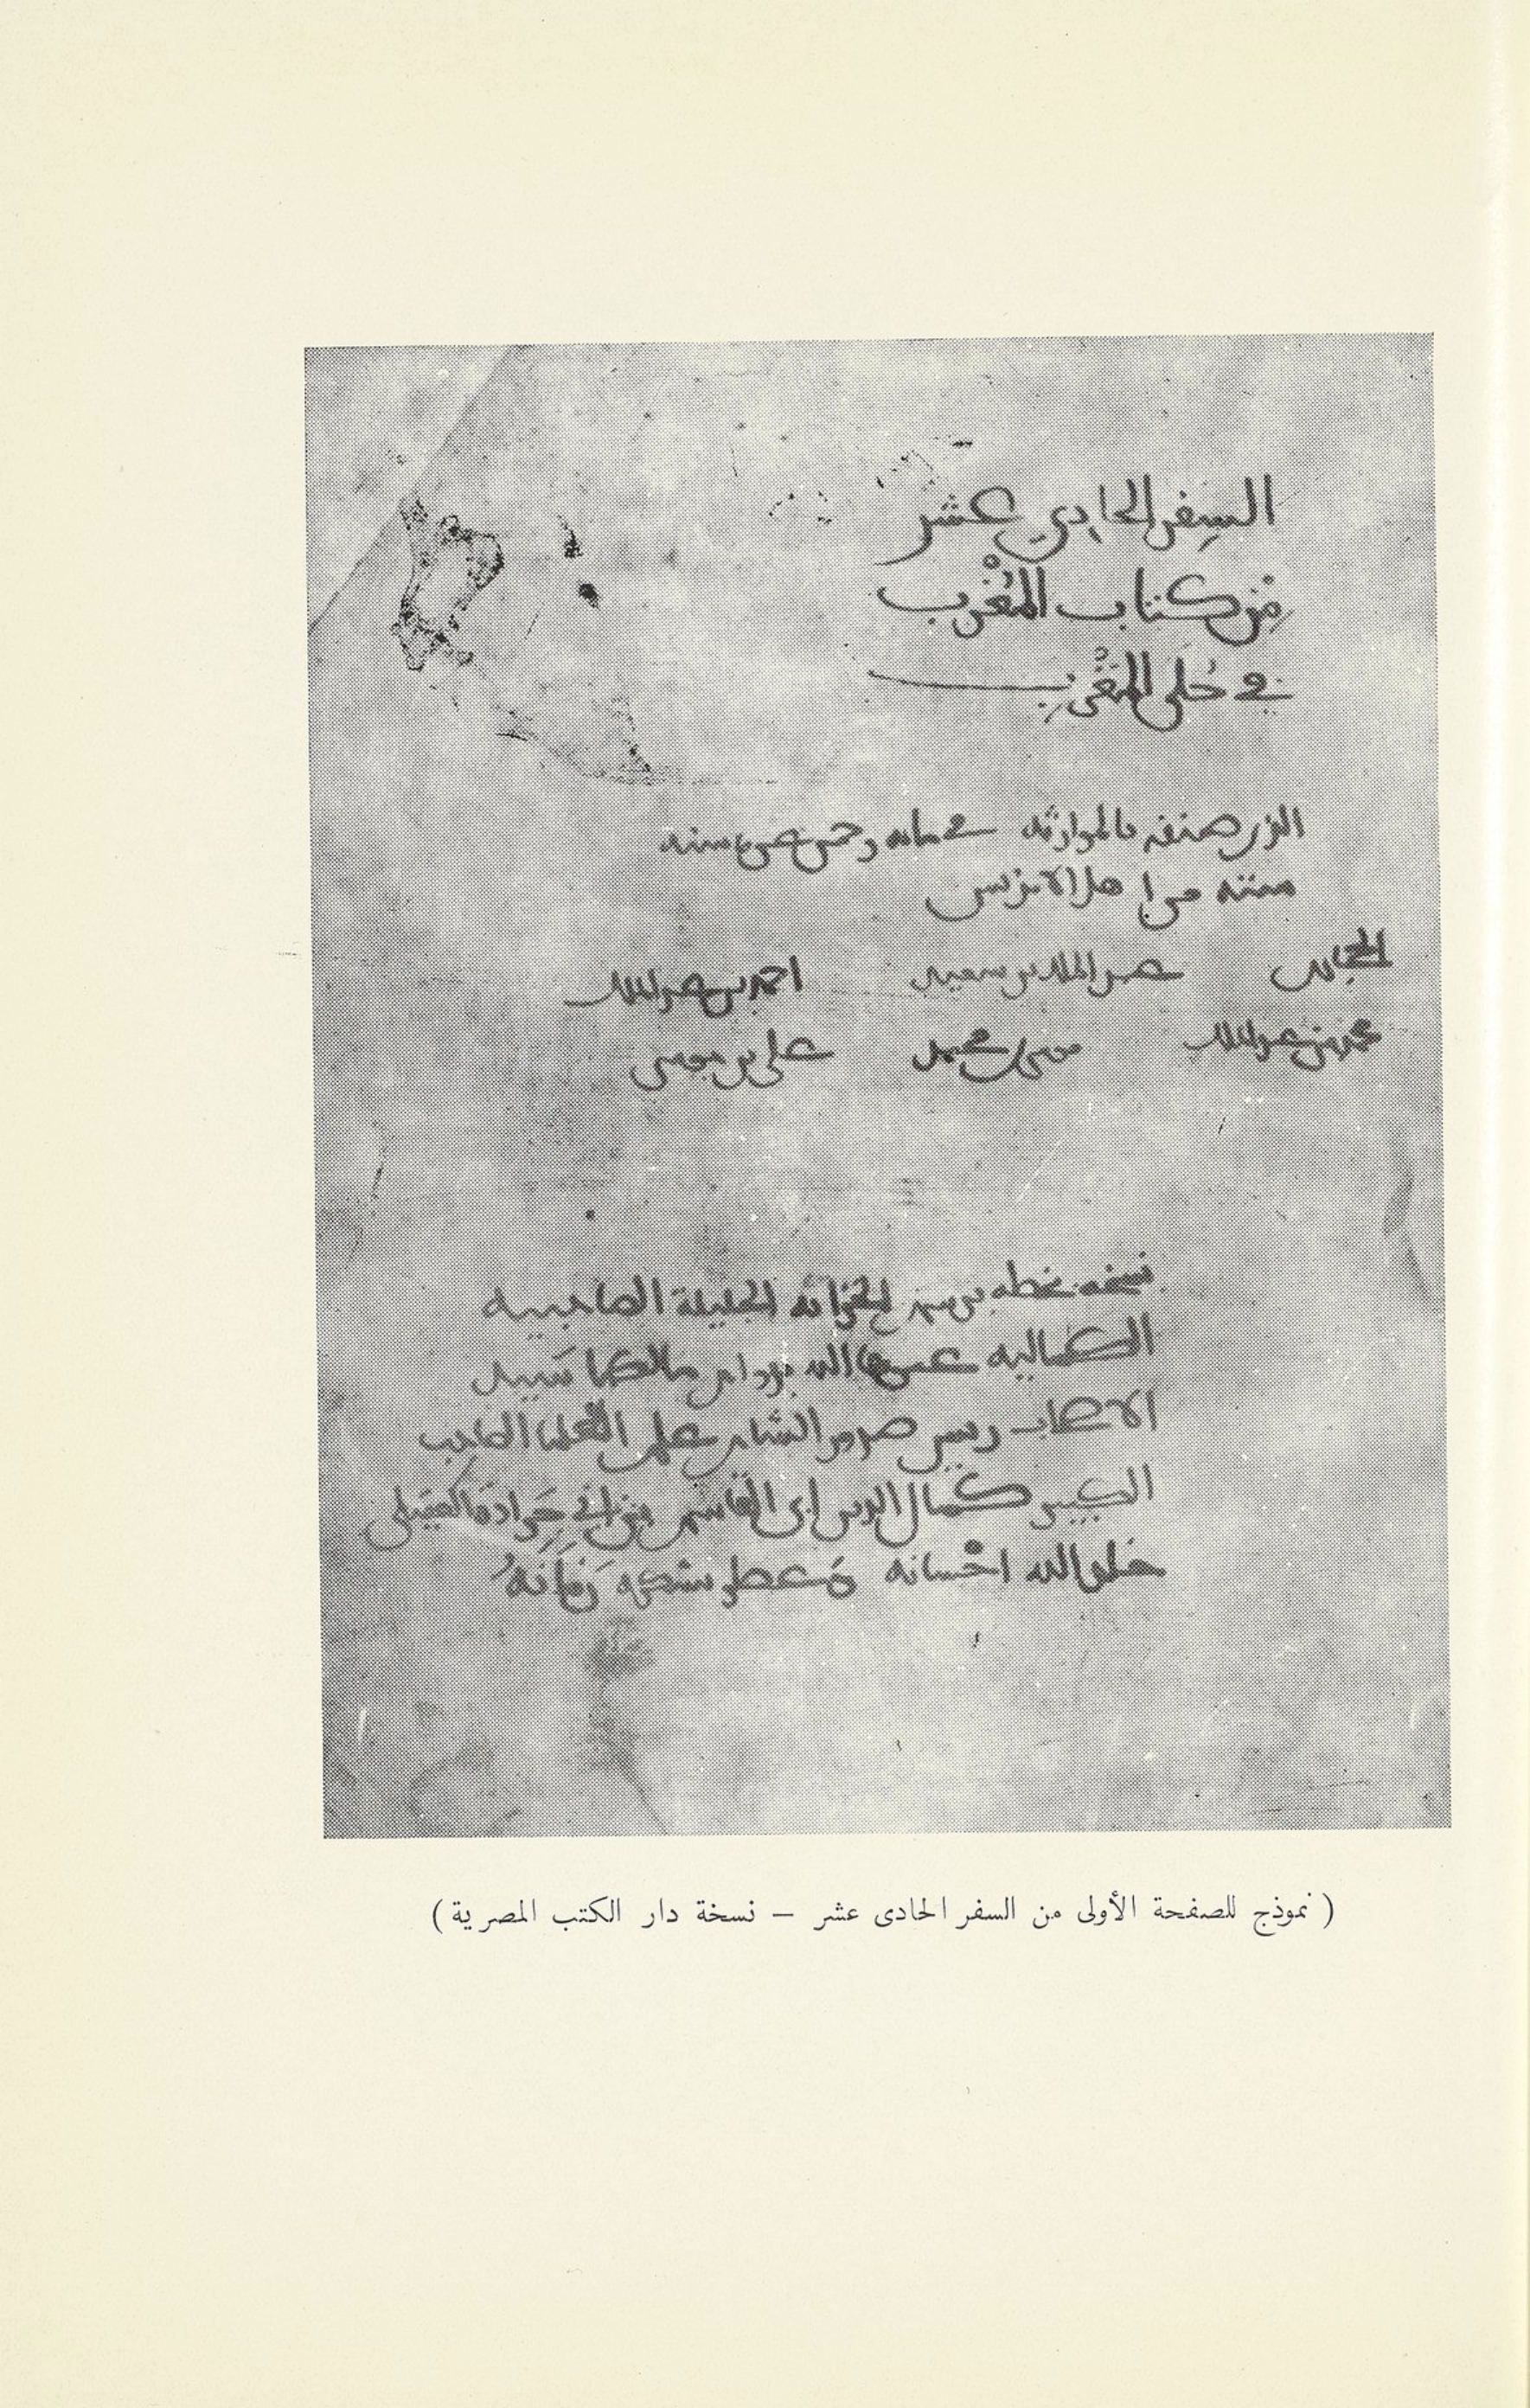 السفر الحادي عشر
من كتاب المُغْرِب
في حُلَى المَغْرِب
الذي صنفه بالموارثه في مائه وخمس عشره سنه
سته من اهل الاندلس
الحجاري عبد الملك بن سعيد احمد بن عبد الملك
محمد بن عبد الملك موسى بن محمد علي بن موسى
نسخه بخطه برسم الخزانه الجليلة الصاحبيه
الكماليه عمرها الله بدوام مالكها سيد
الاصحاب رييس صدور الشام علم العلما الصاحب
الكبير كمال الدين ابي القاسم بن ابي جَرادة العقيلي
خلد الله احسانه وَعطر بشكره زَمَانَهُ
( نموذج للصفحة الأولى من السفر الحادى عشر – نسخة دار الكتب المصرية )